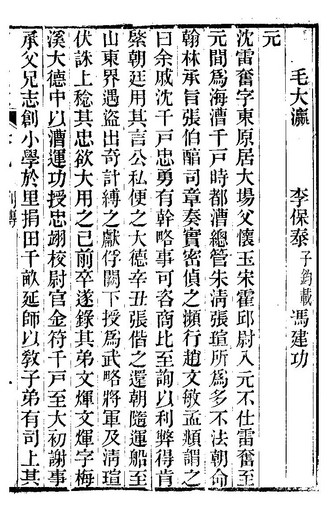 毛大瀛　李保泰子鈞載　馮建功
元
沈雷奮字東原居大場父懷玉宋霍邱尉入元不仕雷奮至
元間爲海漕千戸時都漕總管朱淸張瑄所爲多不法朝命
翰林承旨張伯酷司章奏實密偵之瀕行趙文敏孟頫謂之
曰余戚沈千戸忠勇有幹略事可咨商比至詢以利弊得肯
綮朝廷用其言公私便之大德辛丑張偕之還朝隨運船至
山東界遇盜出奇計縛之獻俘闕下授爲武略將軍及淸瑄
伏誅上稔其忠欲大用之已前卒遂錄其弟文煇文煇字梅
溪大德中以漕運功授忠翊校尉官金符千戸至大初謝事
承父兄志創小學於里捐田千畝延師以教子弟有司上其
列傳